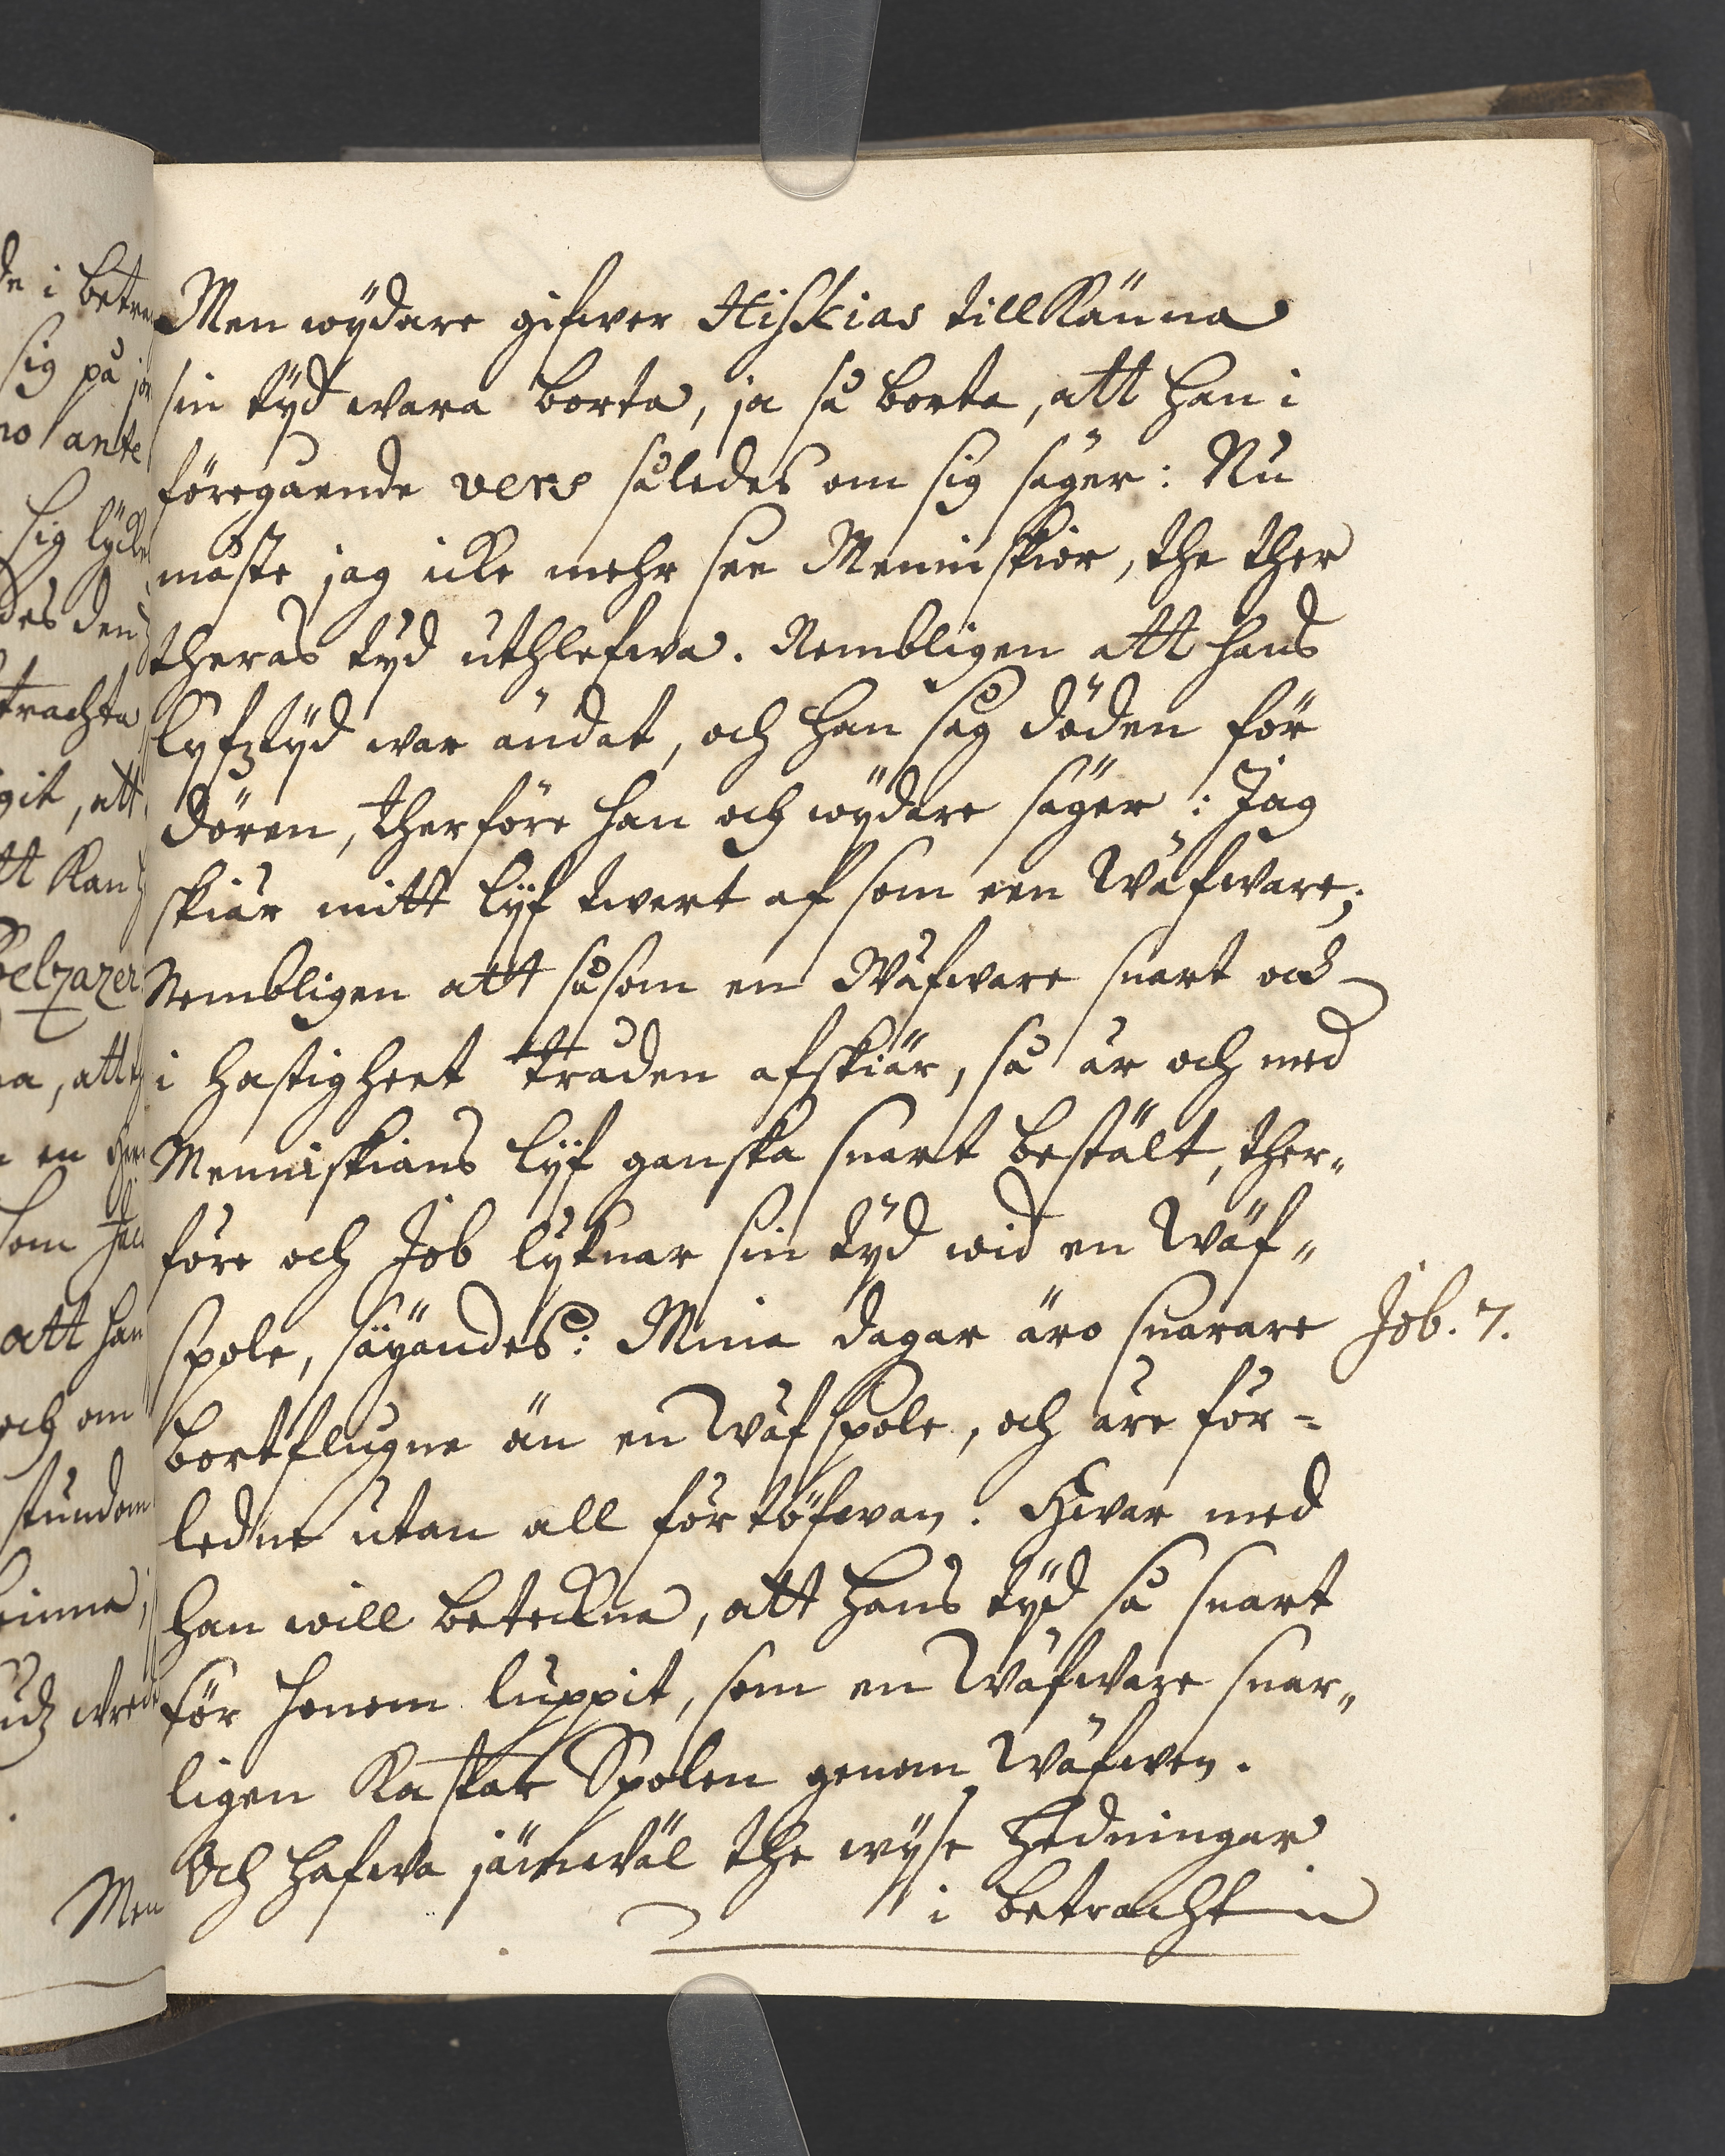 Men wÿdare gifwer Hiskias till Känna
sin tÿd wara borta, ja så borta, att han i
föregaende vers således om sig säger: Nu
måste jag icke mehr see Menniskior, the ther
theras tÿd uthlefwa. Nembligen att hans
lyfztÿd war ändat, och han såg döden för
dören, therföre han och wÿdare säger: Jag
skiär mitt lÿf twert af som een Wäfware;
Nembligen att såsom en Wäfware snart och
i hastigheet tråden afskiär, så är och med
Menniskians lÿf ganska snart bestält, ther„
före och Job lyknar sin tÿd wid en Wäf„
spole, säÿandes: Mina dagar äro snarare
Job. 7.
bortflugne än en Wäfspole, och äre för=
ledne utan all förtöfwan. Hwar med
han will beteckna, att hans tÿd så snart
för honom luppit, som en Wäfware snar„
ligen Kastar Spolen genom Wäfwen.
Och hafwa jämwäl the wÿse Hedningar
i betrachtn
de i betra
sig på jor
no ante
sig lÿck
des den
trachta
git, att
tt Kan
Belzazer
na, att
en
som
att han
och om
stundom
inna,
wred
Men